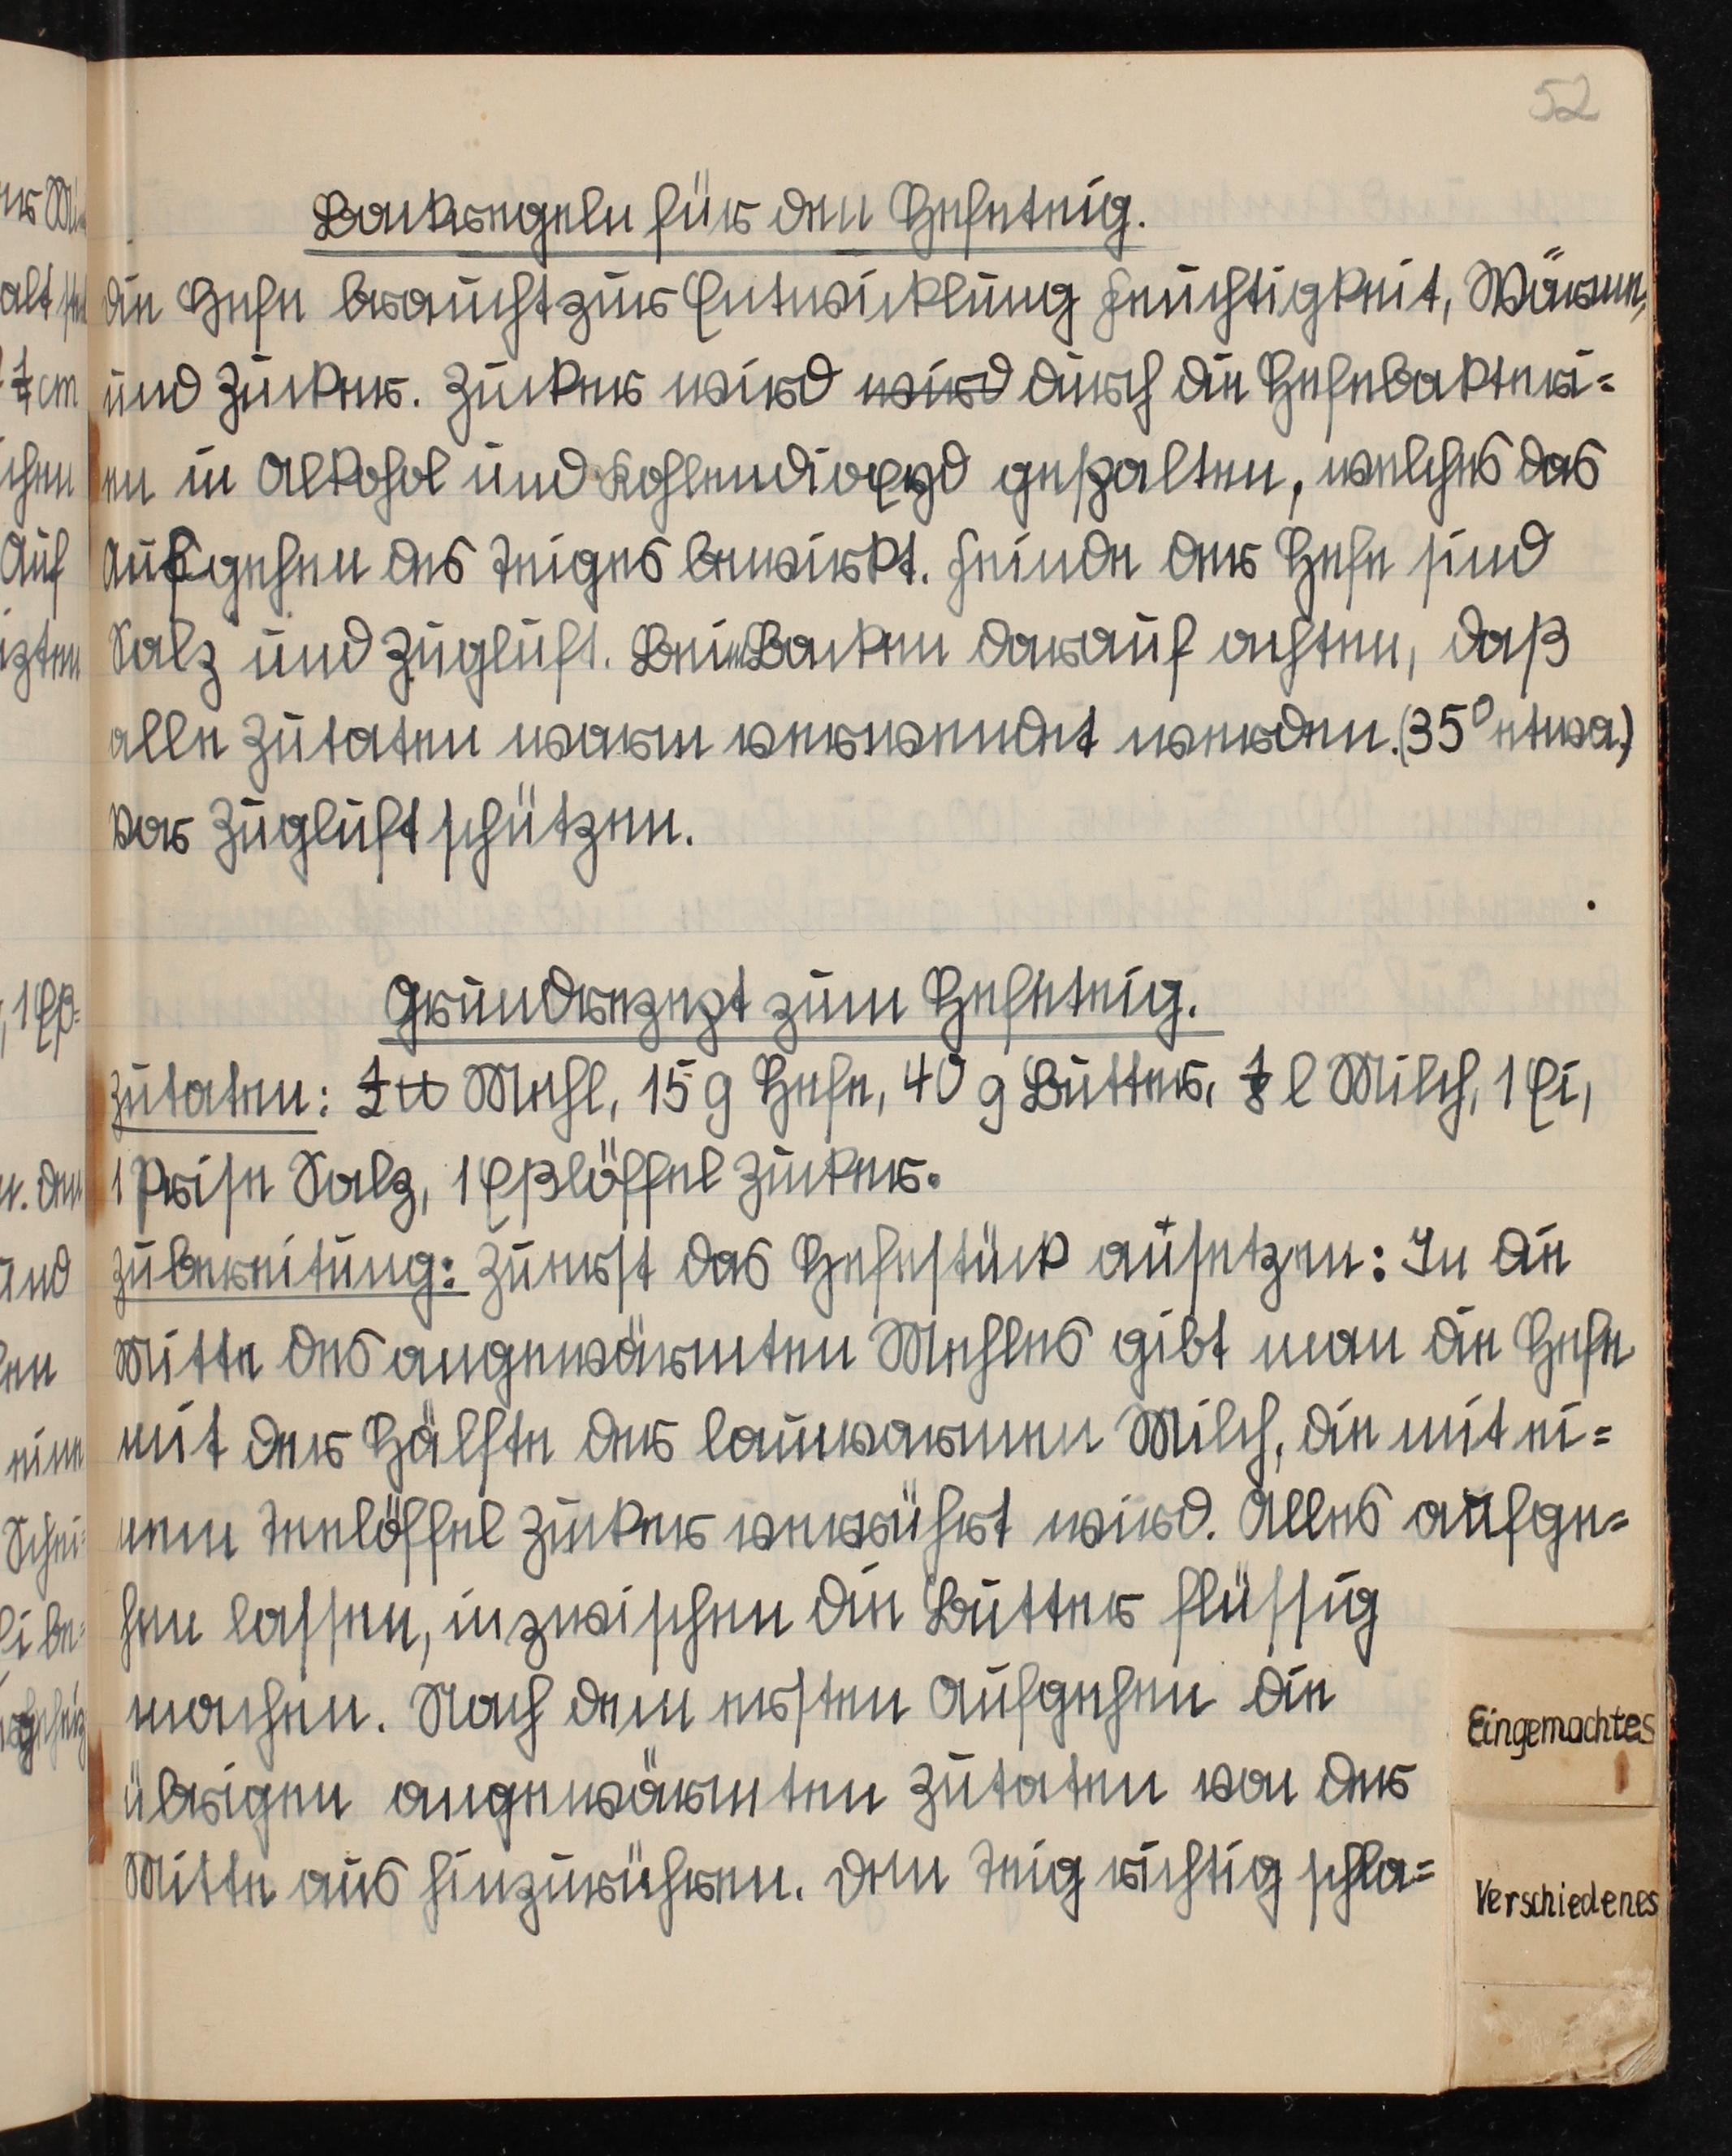 52
Backregeln für den Hefeteig.
Die Hefe braucht zur Entwicklung Feuchtigkeit, Wärme,
und Zucker. Zucker wird wird durch die Hefebakteri=
en in Alkohol und Kohlendioxyd gespalten, welches das
Aufgehen des Teiges bewirkt. Feinde der Hefe sind
Salz und Zugluft. Beim Backen darauf achten, daß
alle Zutaten warm verwendet werden. (35° etwa.)
Vor Zugluft schützen.
Grundrezept zum Hefeteig.
Zutaten: ½ ℔ Mehl, 15 g Hefe, 40 g Butter, ⅛ l Milch, 1 Ei,
1 Prise Salz, 1 Eßlöffel Zucker.
Zubereitung: Zuerst das Hefestück ansetzen: In die
Mitte des angewärmten Mehles gibt man die Hefe
mit der Hälfte der lauwarmen Milch, die mit ei=
nem Teelöffel Zucker verrührt wird. Alles aufge=
hen lassen, inzwischen die Butter flüssig
machen. Nach dem ersten Aufgehen die
übrigen angewärmten Zutaten von der
Mitte aus hinzurühren. Den Teig richtig schla=
Eingemachtes
Verschiedenes